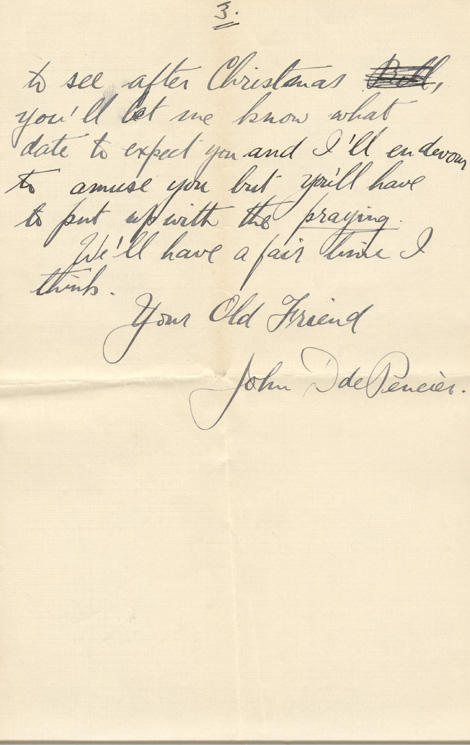 3.
to see after Christmas Bill,
you'll let me know what
date to expect you and I'll endevour
to amuse you but you'll have
to put up with the praying.
We'll have a fair time I
think.
Your Old Friend
John D de Pencier.